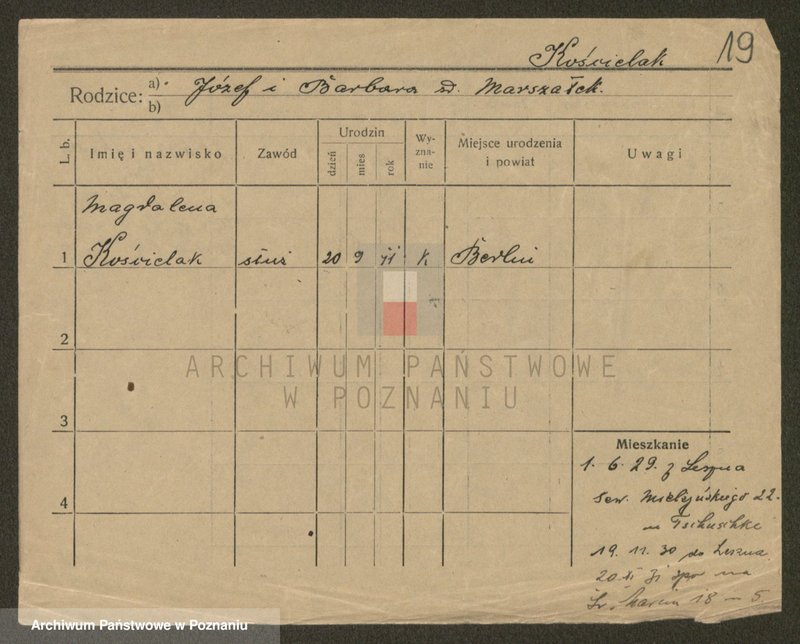 Kościelak 19
Rodzice: a) Józef i Barbara zd. Marszałek.
b)
L. b. Imię i nazwisko Zawód Urodzin dzień mies rok Wy-zna-nie Miejsce urodzenia i powiat Uwagi
Magdalena
1 Kościelak służ 20 9 11 k Berlin
2
ARCHIWUM PAŃSTWOWE
W POZNANIU
3
Mieszkanie
1. 6. 29. z Leszna
Sew. Mielżyńskiego 22.
u Tschuschke
4
19. 11. 30 do Leszna
20 XI 31 zpow na
Św. Marcin 18 – 5
Archiwum Państwowe w Poznaniu